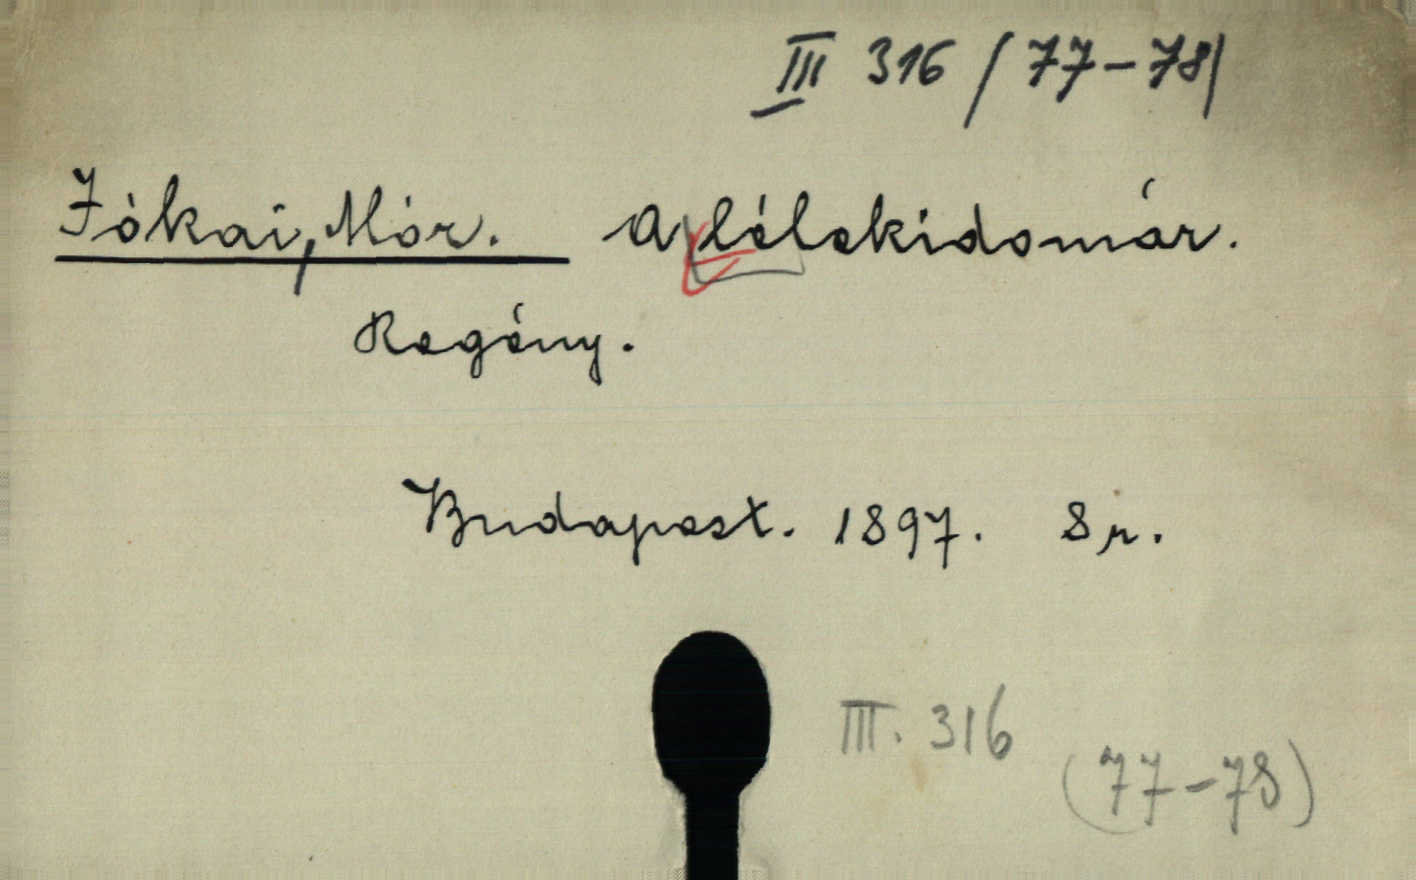 III 316 / 77-78/
Jókai, Mór. A lélekidomár.
Regény.
Budapest. 1897. 8r.
III. 316
(77-78)